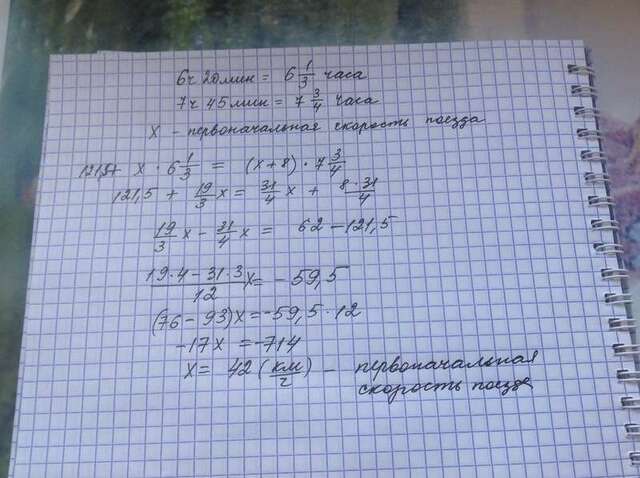 6ч 20мин = 6 1/3 часа
7ч 45мин = 7 3/4 часа
X - первоначальная скорость поезда
121,5+ x · 6 1/3 = (x+8) · 7 3/4
121,5 + 19/3 x = 31/4 x + 8·31/4
19/3 x - 31/4 x = 62 - 121,5
19·4 - 31·3/12 x = - 59,5
(76 - 93)x = -59,5 · 12
-17x = -714
x = 42 (км/ч) - первоначальная
скорость поезда